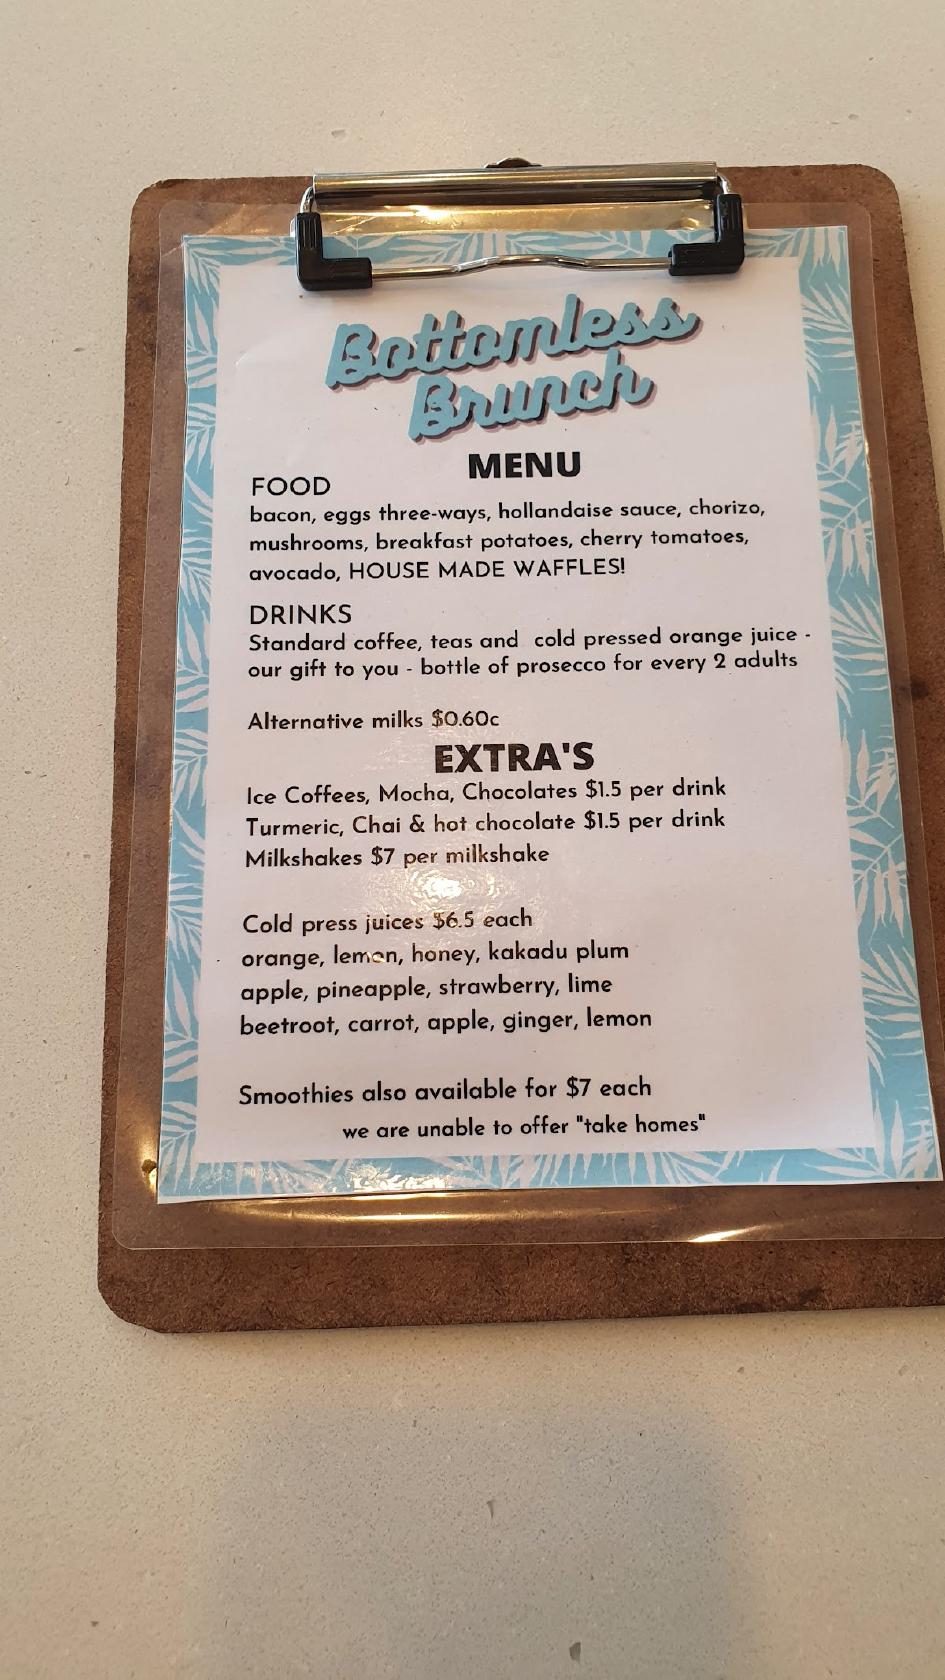 Bottomless
Brunch
MENU
FOOD
bacon, eggs three-ways, hollandaise sauce, chorizo,
mushrooms, breakfast potatoes, cherry tomatoes,
avocado, HOUSE MADE WAFFLES!
DRINKS
Standard coffee, teas and cold pressed orange juice -
our gift to you - bottle of prosecco for every 2 adults
Alternative milks $0.60c
EXTRA'S
Ice Coffees, Mocha, Chocolates $1.5 per drink
Turmeric, Chai & hot chocolate $1.5 per drink
Milkshakes $7 per milkshake
Cold press juices $6.5 each
orange, lemon, honey, kakadu plum
apple, pineapple, strawberry, lime
beetroot, carrot, apple, ginger, lemon
Smoothies also available for $7 each
we are unable to offer "take homes"